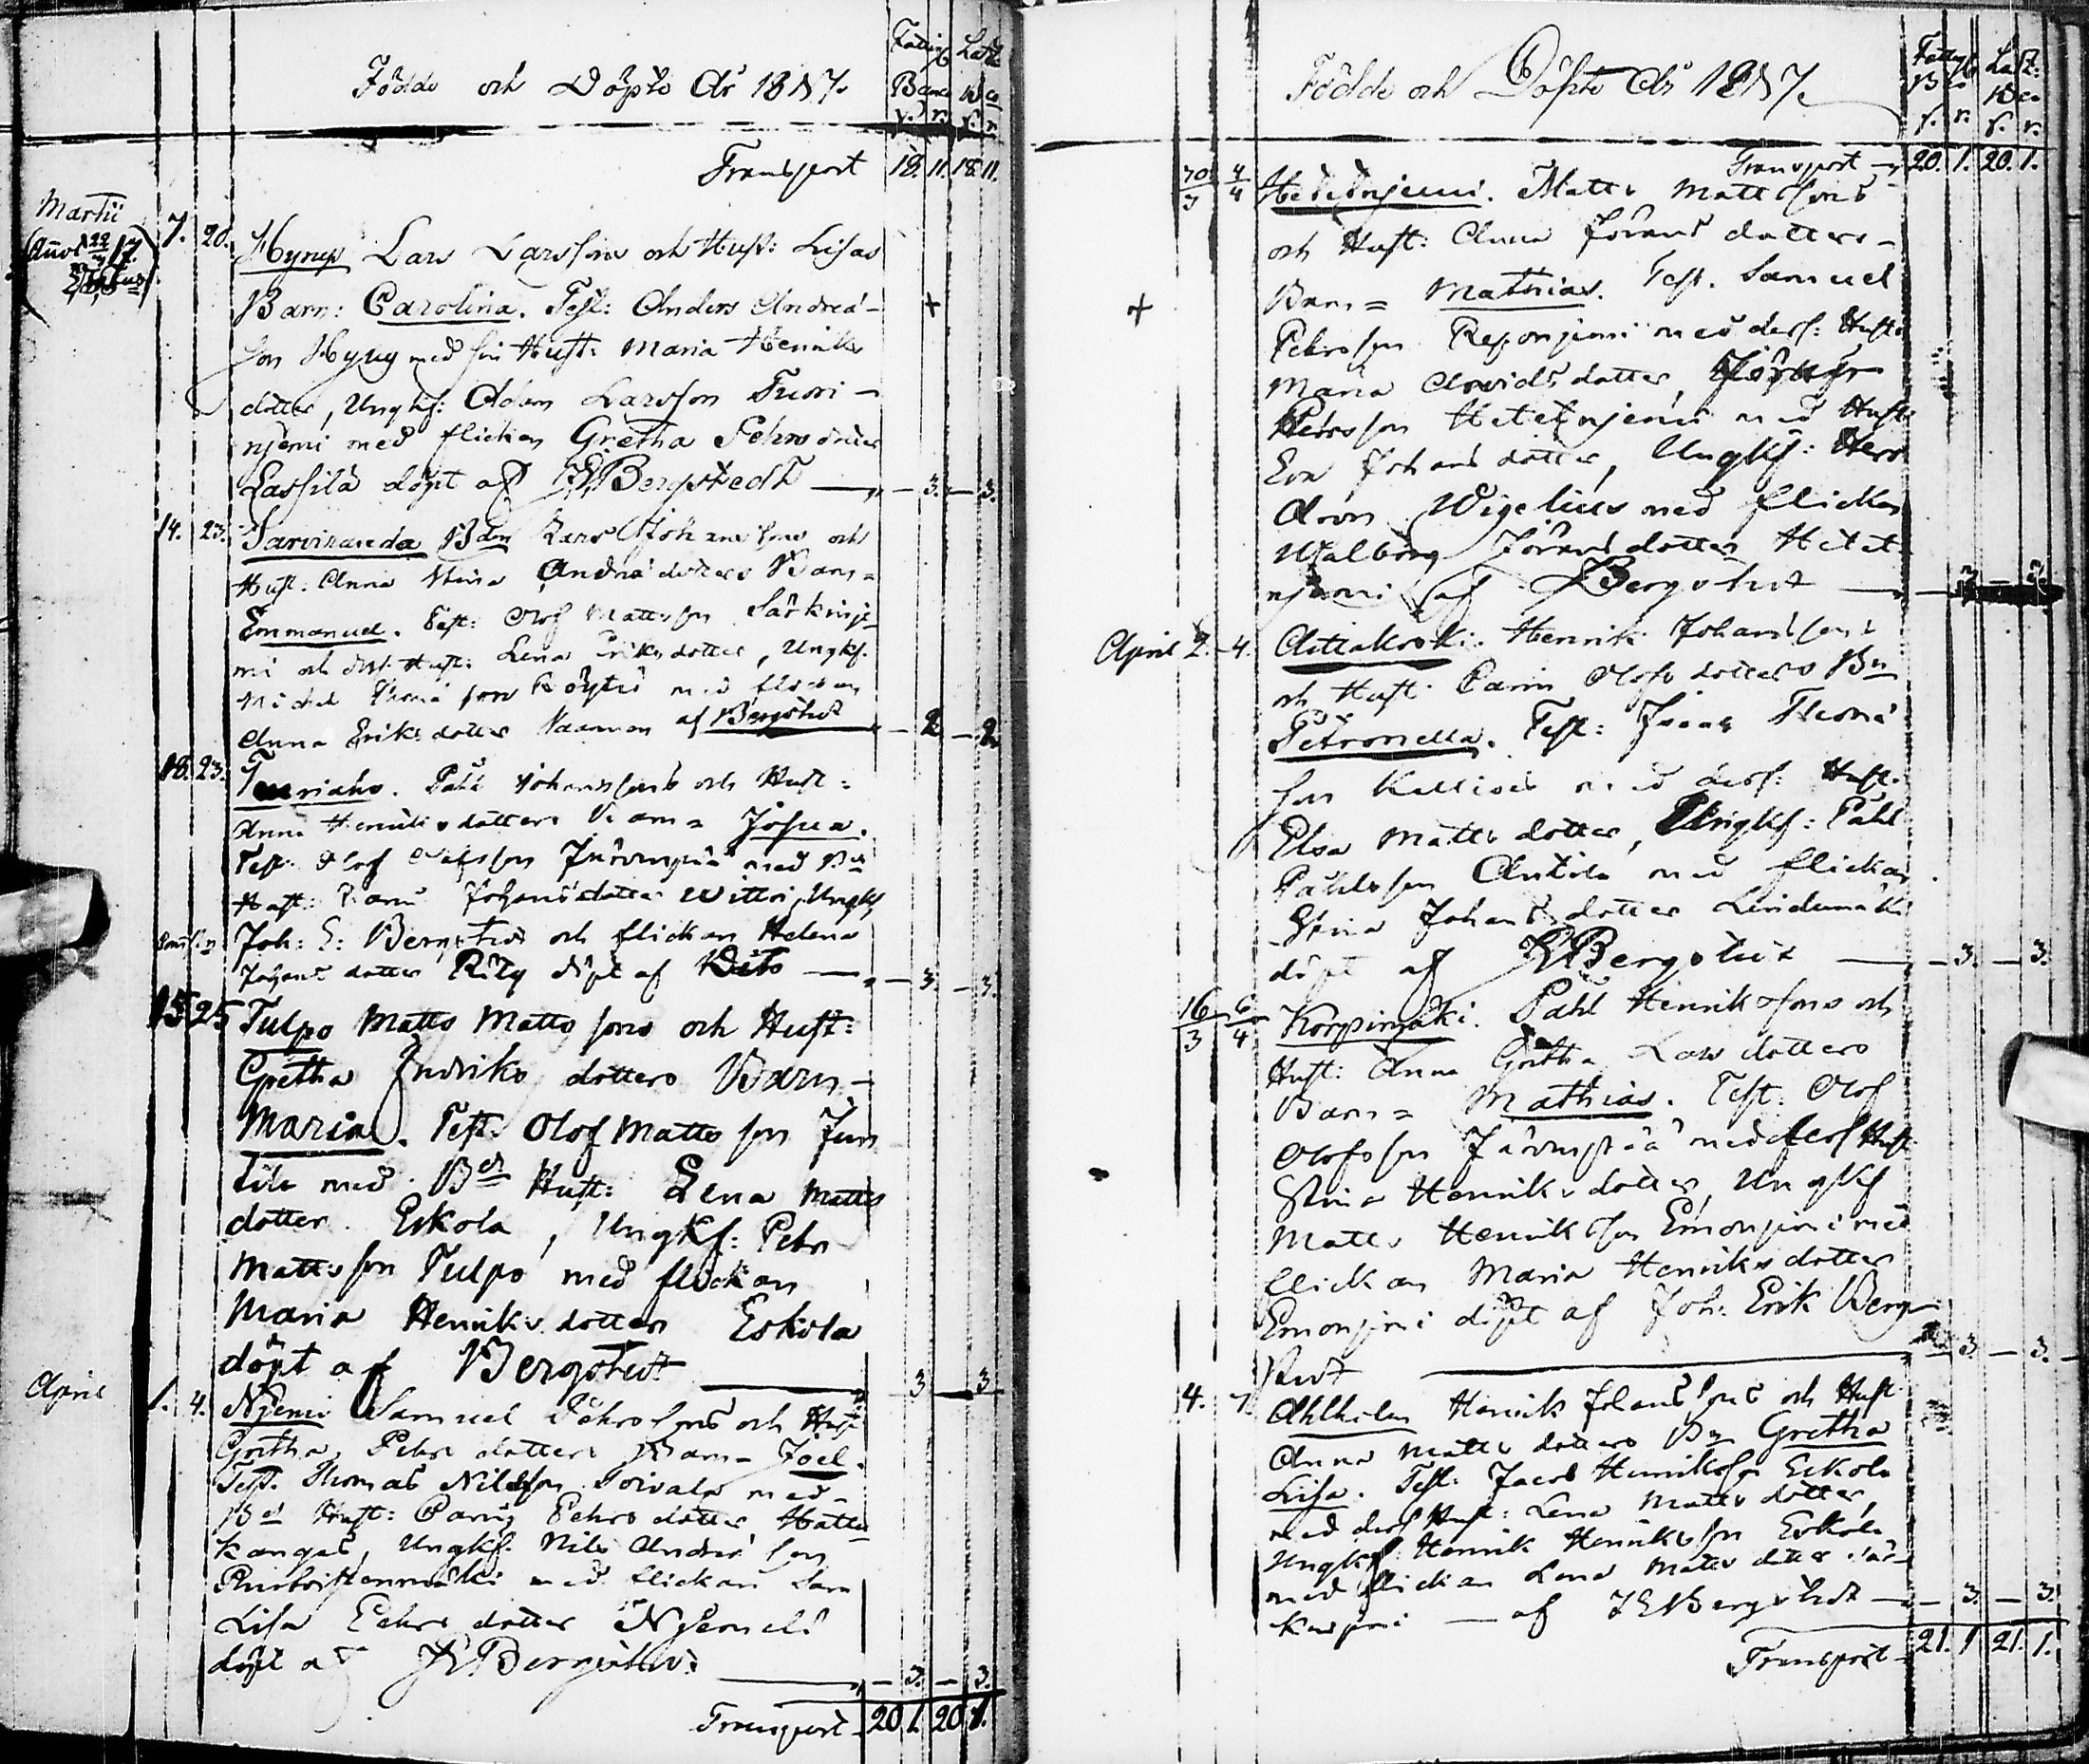 Födde och Döpte År 1817.
Fattig Last
B:co B:co
s. r. s. r.
Transport 18. 11. 18. 11.
Martii
7. 20. Hyrup Lars Larssons och Hust: Lisas
Barn: Carolina. Test: Anders Andreæ-
son Hyry med sin Hust: Maria Henriks
dotter, Ungkf: Adam Larsson Tuori-
njemi med flickan Gretha Pehrs dotter
Lassila döpt af JEBergstedt — 3. — 3.
14. 23. Tarviranda Bdn Lars Johanssons och
Hust: Anna Stina Andreædotters Barn=
Emmanuel. Test: Olof Mattsson Särkinje-
mi och dess Hust: Lena Eriksdotter, Ungkf.
Michel Thomæson Köytiö med flickan
Anna Eriksdotter Naaman af Bergstedt — 2 — 2.
18. 23. Tuuriaho. Påhl Johanssons och Hust:
Anna Henriksdotters Barn= Josua.
Test: Olof Olofsson Järvenpää med Bds
Hust: Johansdotter Ungkf
Joh: E: Bergstedt och flickan Helena
Johans dotter döpt af Dito — 3. — 3.
15 25 Tulpo Matts Matts sons och Hust:
Gretha Indriks dotters Barn-
Maria. Test: Olof Matts son Jun
tila med Bds Hust: Lena Matts
dotter Eskola, Ungkf: Pehr
Matts son Tulpo med flickan
Maria Henriks dotter Eskola
döpt af Bergstedt — 3 — 3
April 1. 4. Njemi Samuel Pehrssons och Hust
Gretha Pehrs dotters Barn- Joel.
Test. Thomas Nilsson Toivala med
Bds Hust: Carin Pehrs dotter Hattu
kangas, Ungkf. Nils Andreæ son
med flickan
Lisa Pehrs dotter Njemeld
döpt af JEBergstedt — 3. — 3.
Transport 20 1. 20 1.
Födde och Döpte År 1817.
Fattig Last:
Bco Bco
s. r. s. r.
Transport — 20. 1. 20. 1.
4/4 Hetetnjemi. Matts Mattssons
och Hust: Anna Jörans dotters-
Barn= Mathias. Test. Samuel
Pehrsson Reponjemi med dess: Hust:
Maria Arvidsdotter,
Pehrsson Hetetnjemi med Hust:
Eva Johans dotter, Ungkf: Herr
Aron Wigelius med flickan
Walborg Jörans dotter Hetet-
njemi af Bergstedt
April 2. 4. Aittakoski. Henrik Johanssons
och Hust: Carin Olofs dotters Bn
Petronella. Test: Isaac Thomæ
son Kallioi med dess: Hust.
Elsa Matts dotter, Ungkf: Påhl
Påhlsson Antila med flickan
Stina Johansdotter Lindumäki
döpt af JEBergstedt — 3. — 3.
16/3 6/4 Korpimäki. Påhl Henrikssons och
Hust: Anna Gretha Lars dotters
Barn= Mathias. Test: Olof
Olofsson Järvenpää med dess Hust
Stina Henriks dotter, Ungkf
Matts Henriksson Emonjemi med
flickan Maria Henriks dotter
Emonjemi döpt af Joh: Erik Berg-
stedt — 3. — 3.
4. 7. Ahlholm Henrik Johanssons och Hust
Anna Matts dotters Bn Gretha
Lisa. Test: Jacob Henriksson Eskola
med dess Hust: Lena Matts dotter,
Ungkf: Henrik Henriksson Eskola
med flickan Lena Matts dotter Sär-
kinjemi — af JEBergstedt — 3. — 3.
Transport 21. 1 21. 1.